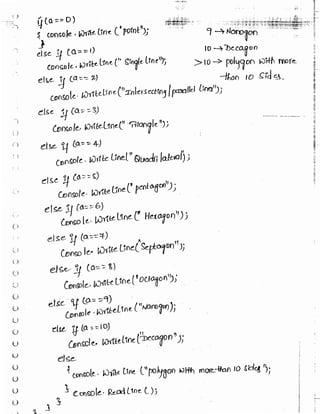 if (a == 0)
{ console.write line ("point");
}
else if (a == 1)
console.write Line (" Single Line");
else if (a == 2)
console.WriteLine("Intersecting | parallel Line");
else if (a == 3)
Console.WriteLine(" Triangle");
else if (a == 4)
Console.Write Line(" Quadrilateral");
else if (a == 5)
Console.write line (" pentagon");
else if (a == 6)
Console.write Line (" Hexagon");
else if (a == 7)
Console.WriteLine(" Septagon");
else if (a == 8)
Console.Write Line ("octagon");
else if (a == 9)
Console.WriteLine ("Nonagon);
else if (a == 10)
Console.WriteLine ("Decagon");
else
{ console.Write Line ("polygon with more than 10 sides");
} console.Read Line ();
}
}
9 → Nonagon
10 → Decagon
>10 → polygon with more
than 10 sides.